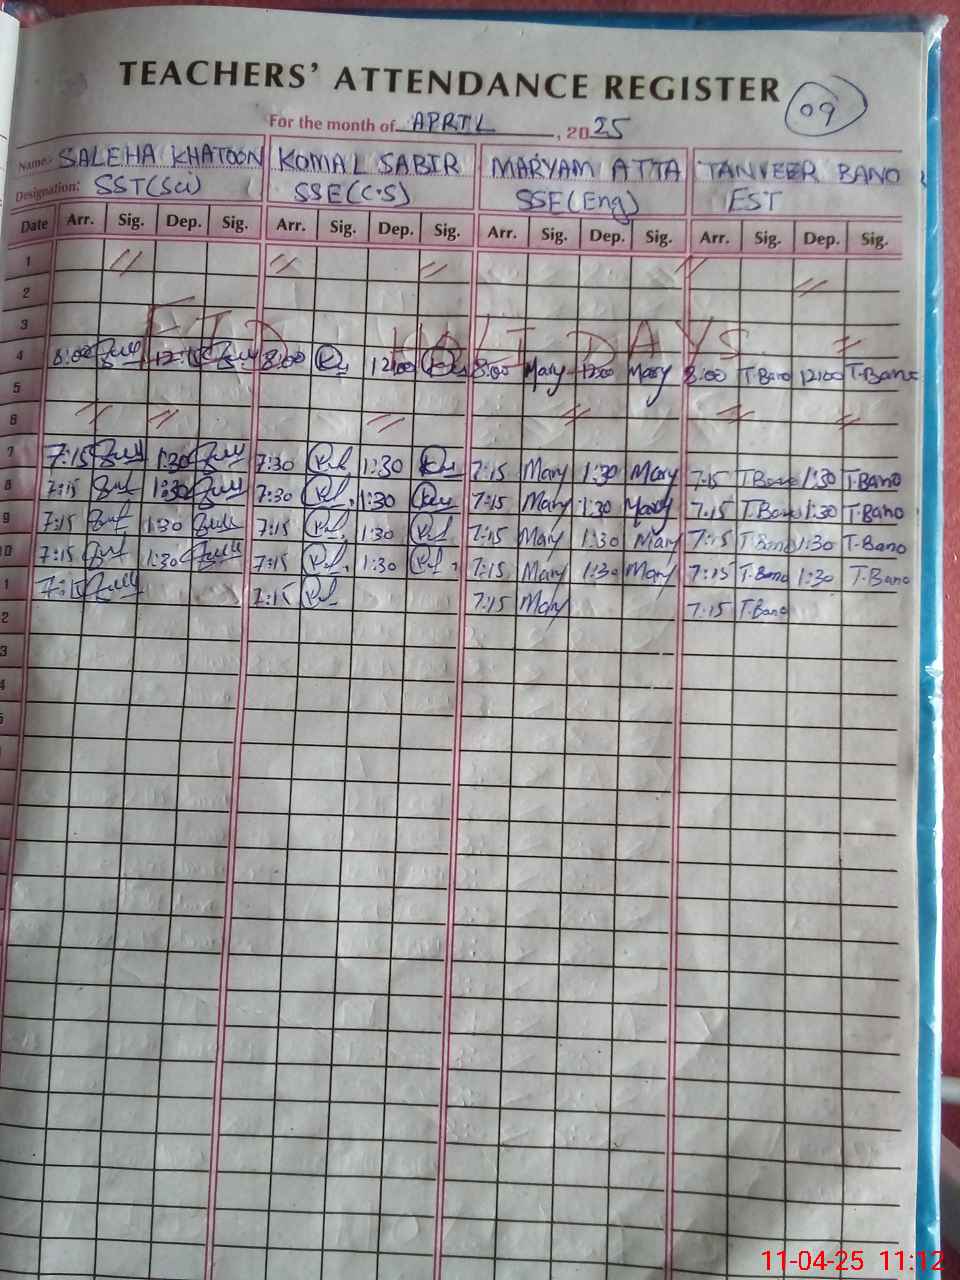 TEACHERS' ATTENDANCE REGISTER
09
For the month of APRIL, 2025
Name:- SALEHA KHATOON KOMAL SABIR MARYAM ATTA TANVEER BANO
Designation: SST(Sci) SSE(C.S) SSE(Eng) EST
Date Arr. Sig. Dep. Sig. Arr. Sig. Dep. Sig. Arr. Sig. Dep. Sig. Arr. Sig. Dep. Sig.
1
2
3 DAYS
4 8:00 8:00 12:00 8:00 Mary 12:00 Mary 8:00 T.Bano 12:00 T.Bano
5
6
7 7:15 1:30 7:30 1:30 7:15 Mary 1:30 Mary 7:15 T.Bano 1:30 T.Bano
8 7:15 1:30 7:30 1:30 7:15 Mary 1:30 Mary 7:15 T.Bano 1:30 T.Bano
9 7:15 1:30 7:15 1:30 7:15 Mary 1:30 Mary 7:15 T.Bano 1:30 T.Bano
0 7:15 1:30 7:15 1:30 7:15 Mary 1:30 Mary 7:15 T.Bano 1:30 T.Bano
1 7:15 7:15 7:15 Mary 7:15 T.Bano
2
3
4
11-04-25 11:12